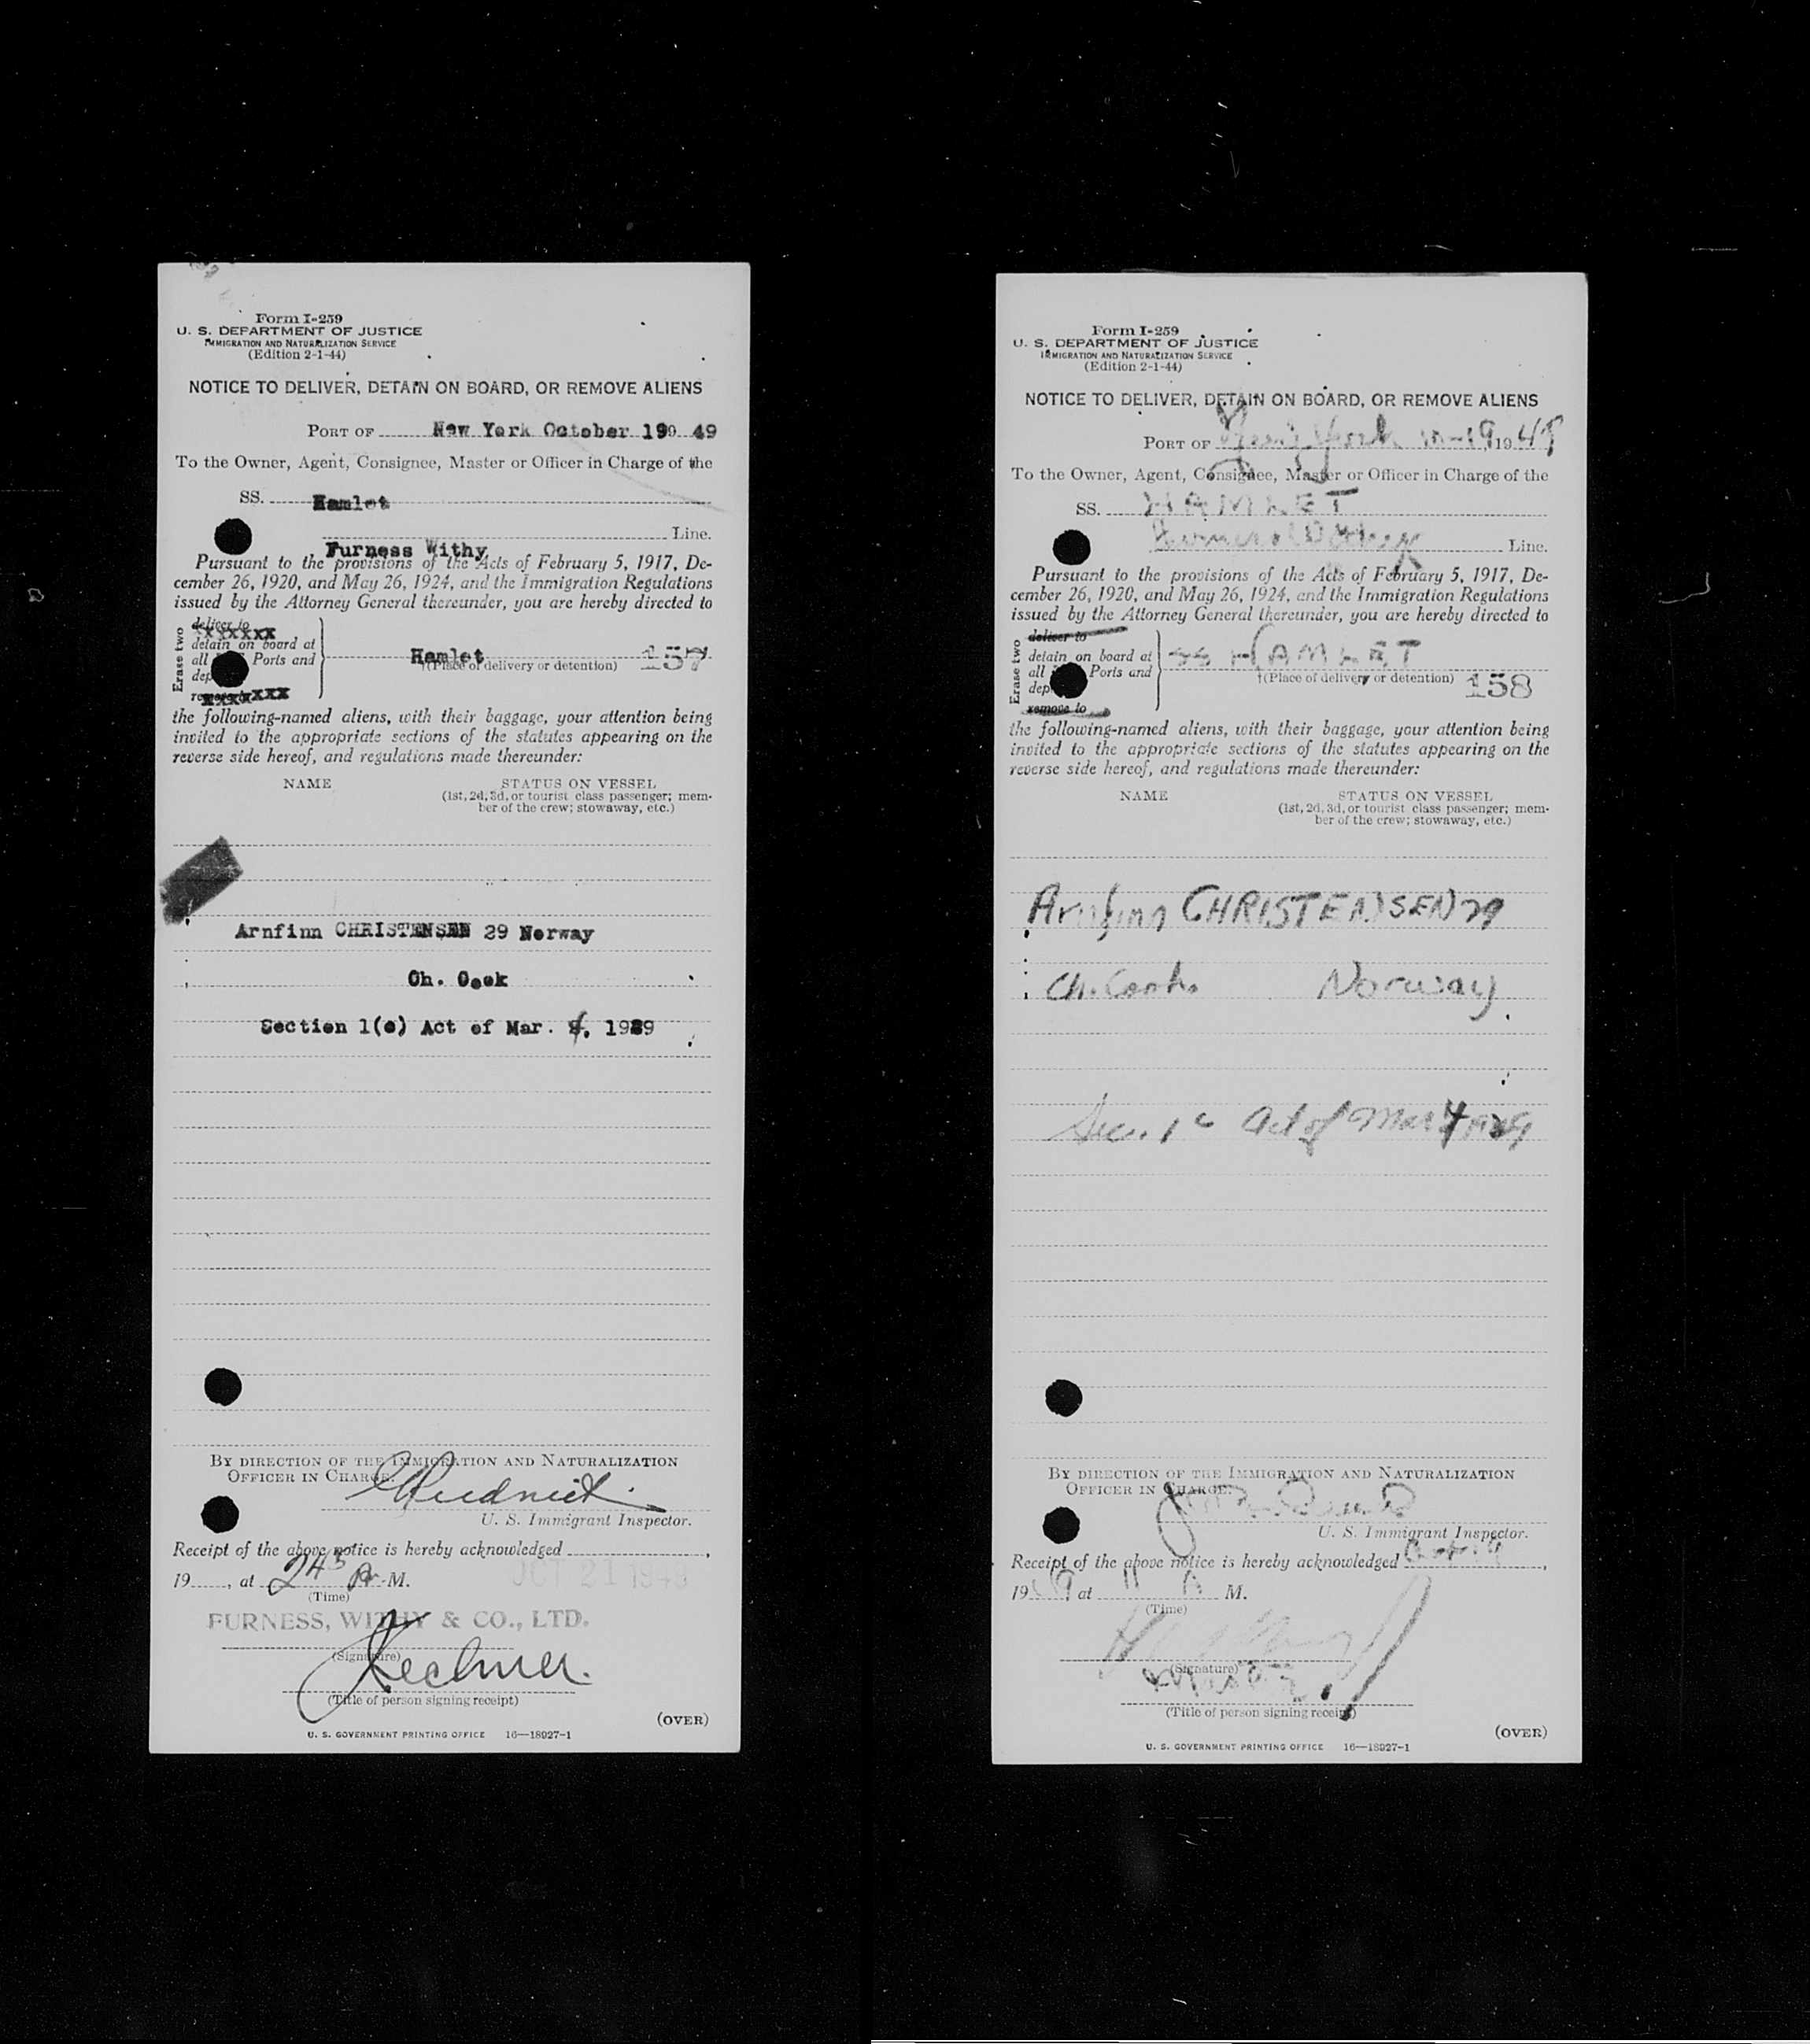 Form I-259
U. S. DEPARTMENT OF JUSTICE
IMMIGRATION AND NATURALIZATION SERVICE
(Edition 2-1-44)
NOTICE TO DELIVER, DETAIN ON BOARD, OR REMOVE ALIENS
PORT OF New York October 19 49
To the Owner, Agent, Consignee, Master or Officer in Charge of the
SS. Hamlet
Line.
Furness Withy
Pursuant to the provisions of the Acts of February 5, 1917, De-
cember 26, 1920, and May 26, 1924, and the Immigration Regulations
issued by the Attorney General thereunder, you are hereby directed to
Erase two
deliver to
detain on board at
all Ports and
dep
remove xxx
Hamlet
†(Place of delivery or detention) 157
the following-named aliens, with their baggage, your attention being
invited to the appropriate sections of the statutes appearing on the
reverse side hereof, and regulations made thereunder:
NAME STATUS ON VESSEL
(1st, 2d, 3d, or tourist class passenger; mem-
ber of the crew; stowaway, etc.)
Arnfinn CHRISTENSEN 29 Norway
Ch. Cook
Section 1(c) Act of Mar. 4, 1929
BY DIRECTION OF THE IMMIGRATION AND NATURALIZATION
OFFICER IN CHARGE:
U. S. Immigrant Inspector.
Receipt of the above notice is hereby acknowledged
OCT 21 1949
19, at 2 45 P M.
(Time)
FURNESS, WITHY & CO., LTD.
(Signature)
(Title of person signing receipt)
(OVER)
U. S. GOVERNMENT PRINTING OFFICE 16—18927-1
Form I-259
U. S. DEPARTMENT OF JUSTICE
IMMIGRATION AND NATURALIZATION SERVICE
(Edition 2-1-44)
NOTICE TO DELIVER, DETAIN ON BOARD, OR REMOVE ALIENS
PORT OF New York 10-19 1949
To the Owner, Agent, Consignee, Master or Officer in Charge of the
SS. HAMLET
Line.
Pursuant to the provisions of the Acts of February 5, 1917, De-
cember 26, 1920, and May 26, 1924, and the Immigration Regulations
issued by the Attorney General thereunder, you are hereby directed to
Erase two
deliver to
detain on board at
all Ports and
dep
remove to
SS HAMLET
†(Place of delivery or detention) 158
the following-named aliens, with their baggage, your attention being
invited to the appropriate sections of the statutes appearing on the
reverse side hereof, and regulations made thereunder:
NAME STATUS ON VESSEL
(1st, 2d, 3d, or tourist class passenger; mem-
ber of the crew; stowaway, etc.)
Arnfinn CHRISTENSEN 29
Ch. Cook. Norway
Sec. 1 c Act of Mar 4 1929
BY DIRECTION OF THE IMMIGRATION AND NATURALIZATION
OFFICER IN CHARGE:
U. S. Immigrant Inspector.
Receipt of the above notice is hereby acknowledged Oct 19,
1949 at 11 A M.
(Time)
(Signature)
Master
(Title of person signing receipt)
(OVER)
U. S. GOVERNMENT PRINTING OFFICE 16—18927-1